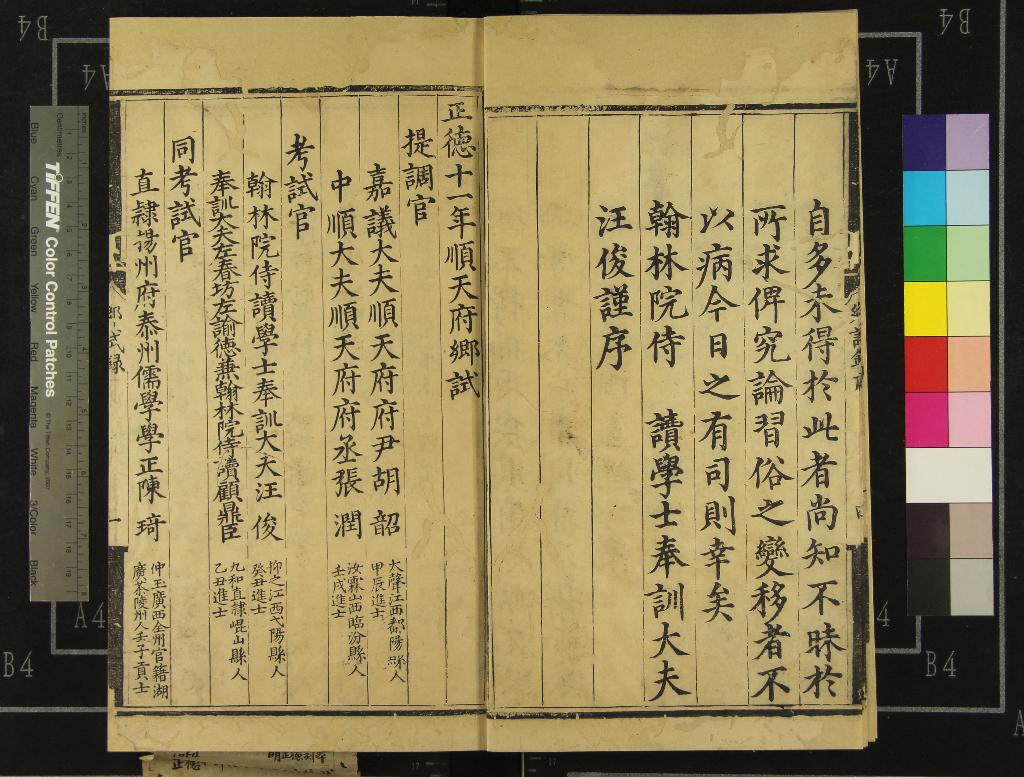 自多未得於此者尚知不昧於
所求俾究論習俗之變移者不
以病今日之有司則幸矣
翰林院侍 讀學士奉訓大夫
汪俊謹序
正德十一年順天府鄉試
提調官
嘉議大夫順天府府尹胡 韶
大聲江西鄱陽縣人
甲辰進士
中順大夫順天府府丞張 潤
汝霖山西臨汾縣人
壬戌進士
考試官
翰林院侍讀學士奉訓大夫汪 俊
抑之江西弋陽縣人
癸丑進士
奉訓大夫左春坊左諭德兼翰林院侍讀顧鼎臣
九和直隸崐山縣人
乙丑進士
同考試官
直隸揚州府泰州儒學學正陳 琦
仲玉廣西全州官籍湖
廣茶陵州人壬子貢士
鄉試錄
一
TIFFEN Color Control Patches
© The Tiffen Company, 2007
Centimetres
Inches
Blue
Cyan
Green
Yellow
Red
Magenta
White
3/Color
Black
B4
A4
A4
B4
B4
A4
A4
B4